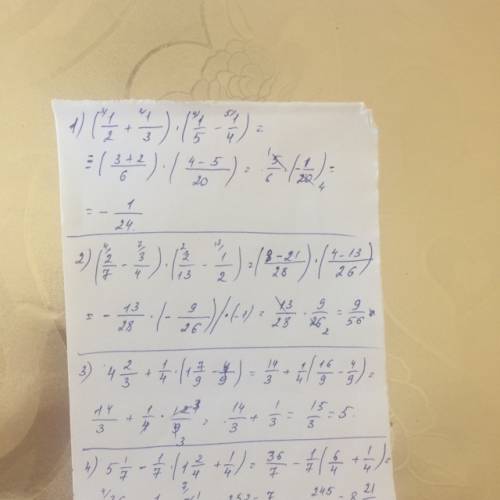 1) (1/2 + 1/3) · (1/5 - 1/4) =
= (3+2/6) · (4-5/20) = 5/6 · (-1/20) =
= - 1/24
2) (2/7 - 3/4) · (2/13 - 1/2) = (8-21/28) · (4-13/26)
= - 13/28 · (- 9/26) / · (-1) = 13/28 · 9/26 = 9/56
3) 4 2/3 + 1/4 · (1 7/9 - 4/9) = 14/3 + 1/4 (16/9 - 4/9) =
14/3 + 1/4 · 12/9 = 14/3 + 1/3 = 15/3 = 5.
4) 5 1/7 - 1/7 · (1 2/4 + 1/4) = 36/7 - 1/7 (6/4 + 1/4) =